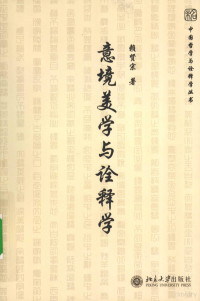 中国哲学与诠释学丛书
赖贤宗 著
意境美学与诠释学
北京大学出版社
PEKING UNIVERSITY PRESS